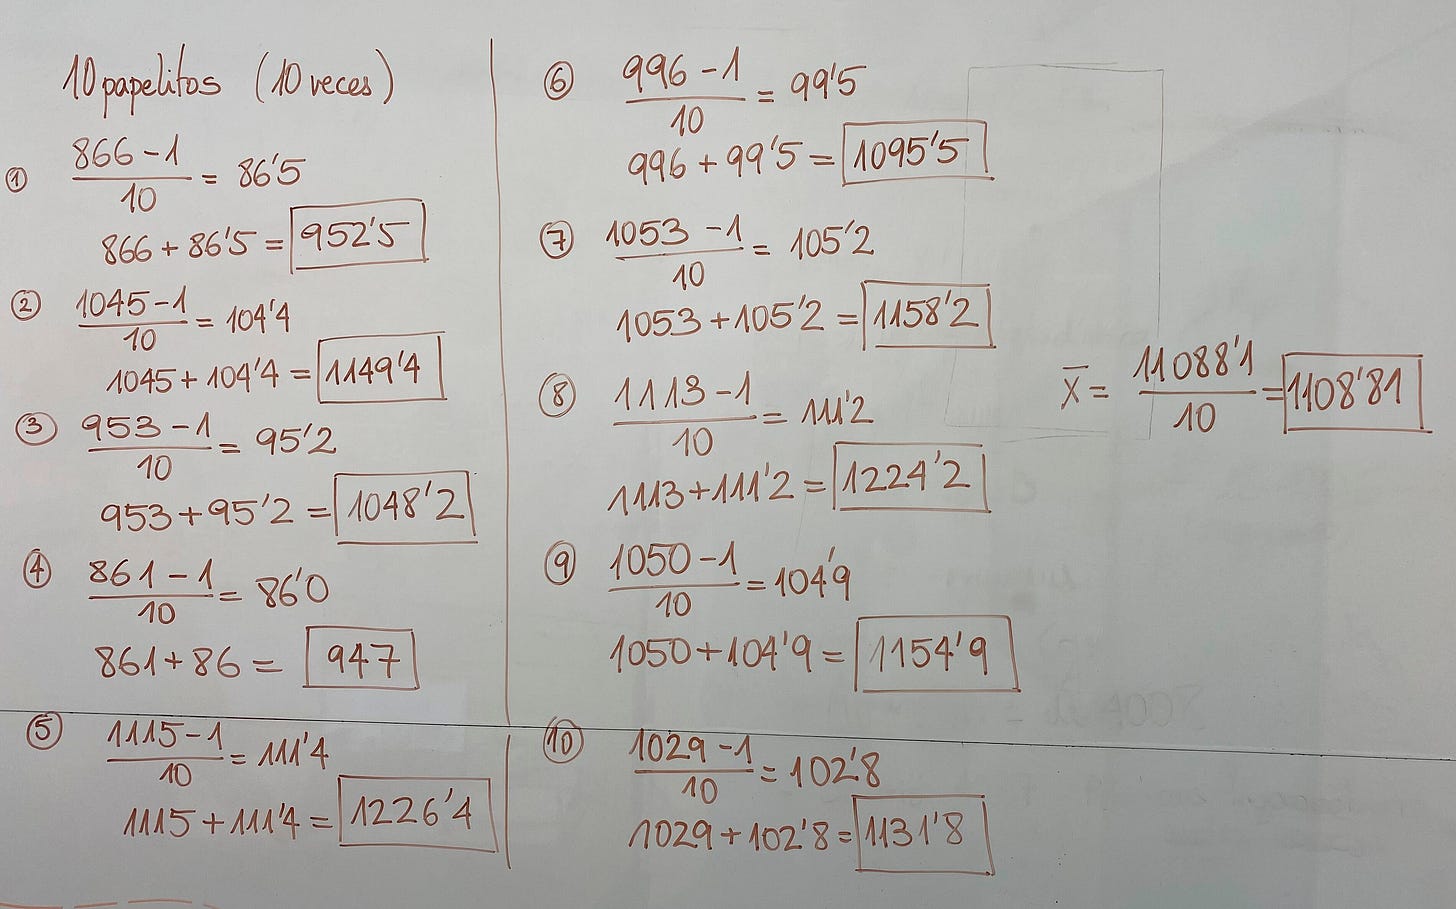 10 papelitos (10 veces)
① 866 - 1 / 10 = 86'5
866 + 86'5 = 952'5
② 1045 - 1 / 10 = 104'4
1045 + 104'4 = 1149'4
③ 953 - 1 / 10 = 95'2
953 + 95'2 = 1048'2
④ 861 - 1 / 10 = 86'0
861 + 86 = 947
⑤ 1115 - 1 / 10 = 111'4
1115 + 111'4 = 1226'4
⑥ 996 - 1 / 10 = 99'5
996 + 99'5 = 1095'5
⑦ 1053 - 1 / 10 = 105'2
1053 + 105'2 = 1158'2
⑧ 1113 - 1 / 10 = 111'2
1113 + 111'2 = 1224'2
⑨ 1050 - 1 / 10 = 104'9
1050 + 104'9 = 1154'9
⑩ 1029 - 1 / 10 = 102'8
1029 + 102'8 = 1131'8
x̄ = 11088'1 / 10 = 1108'81